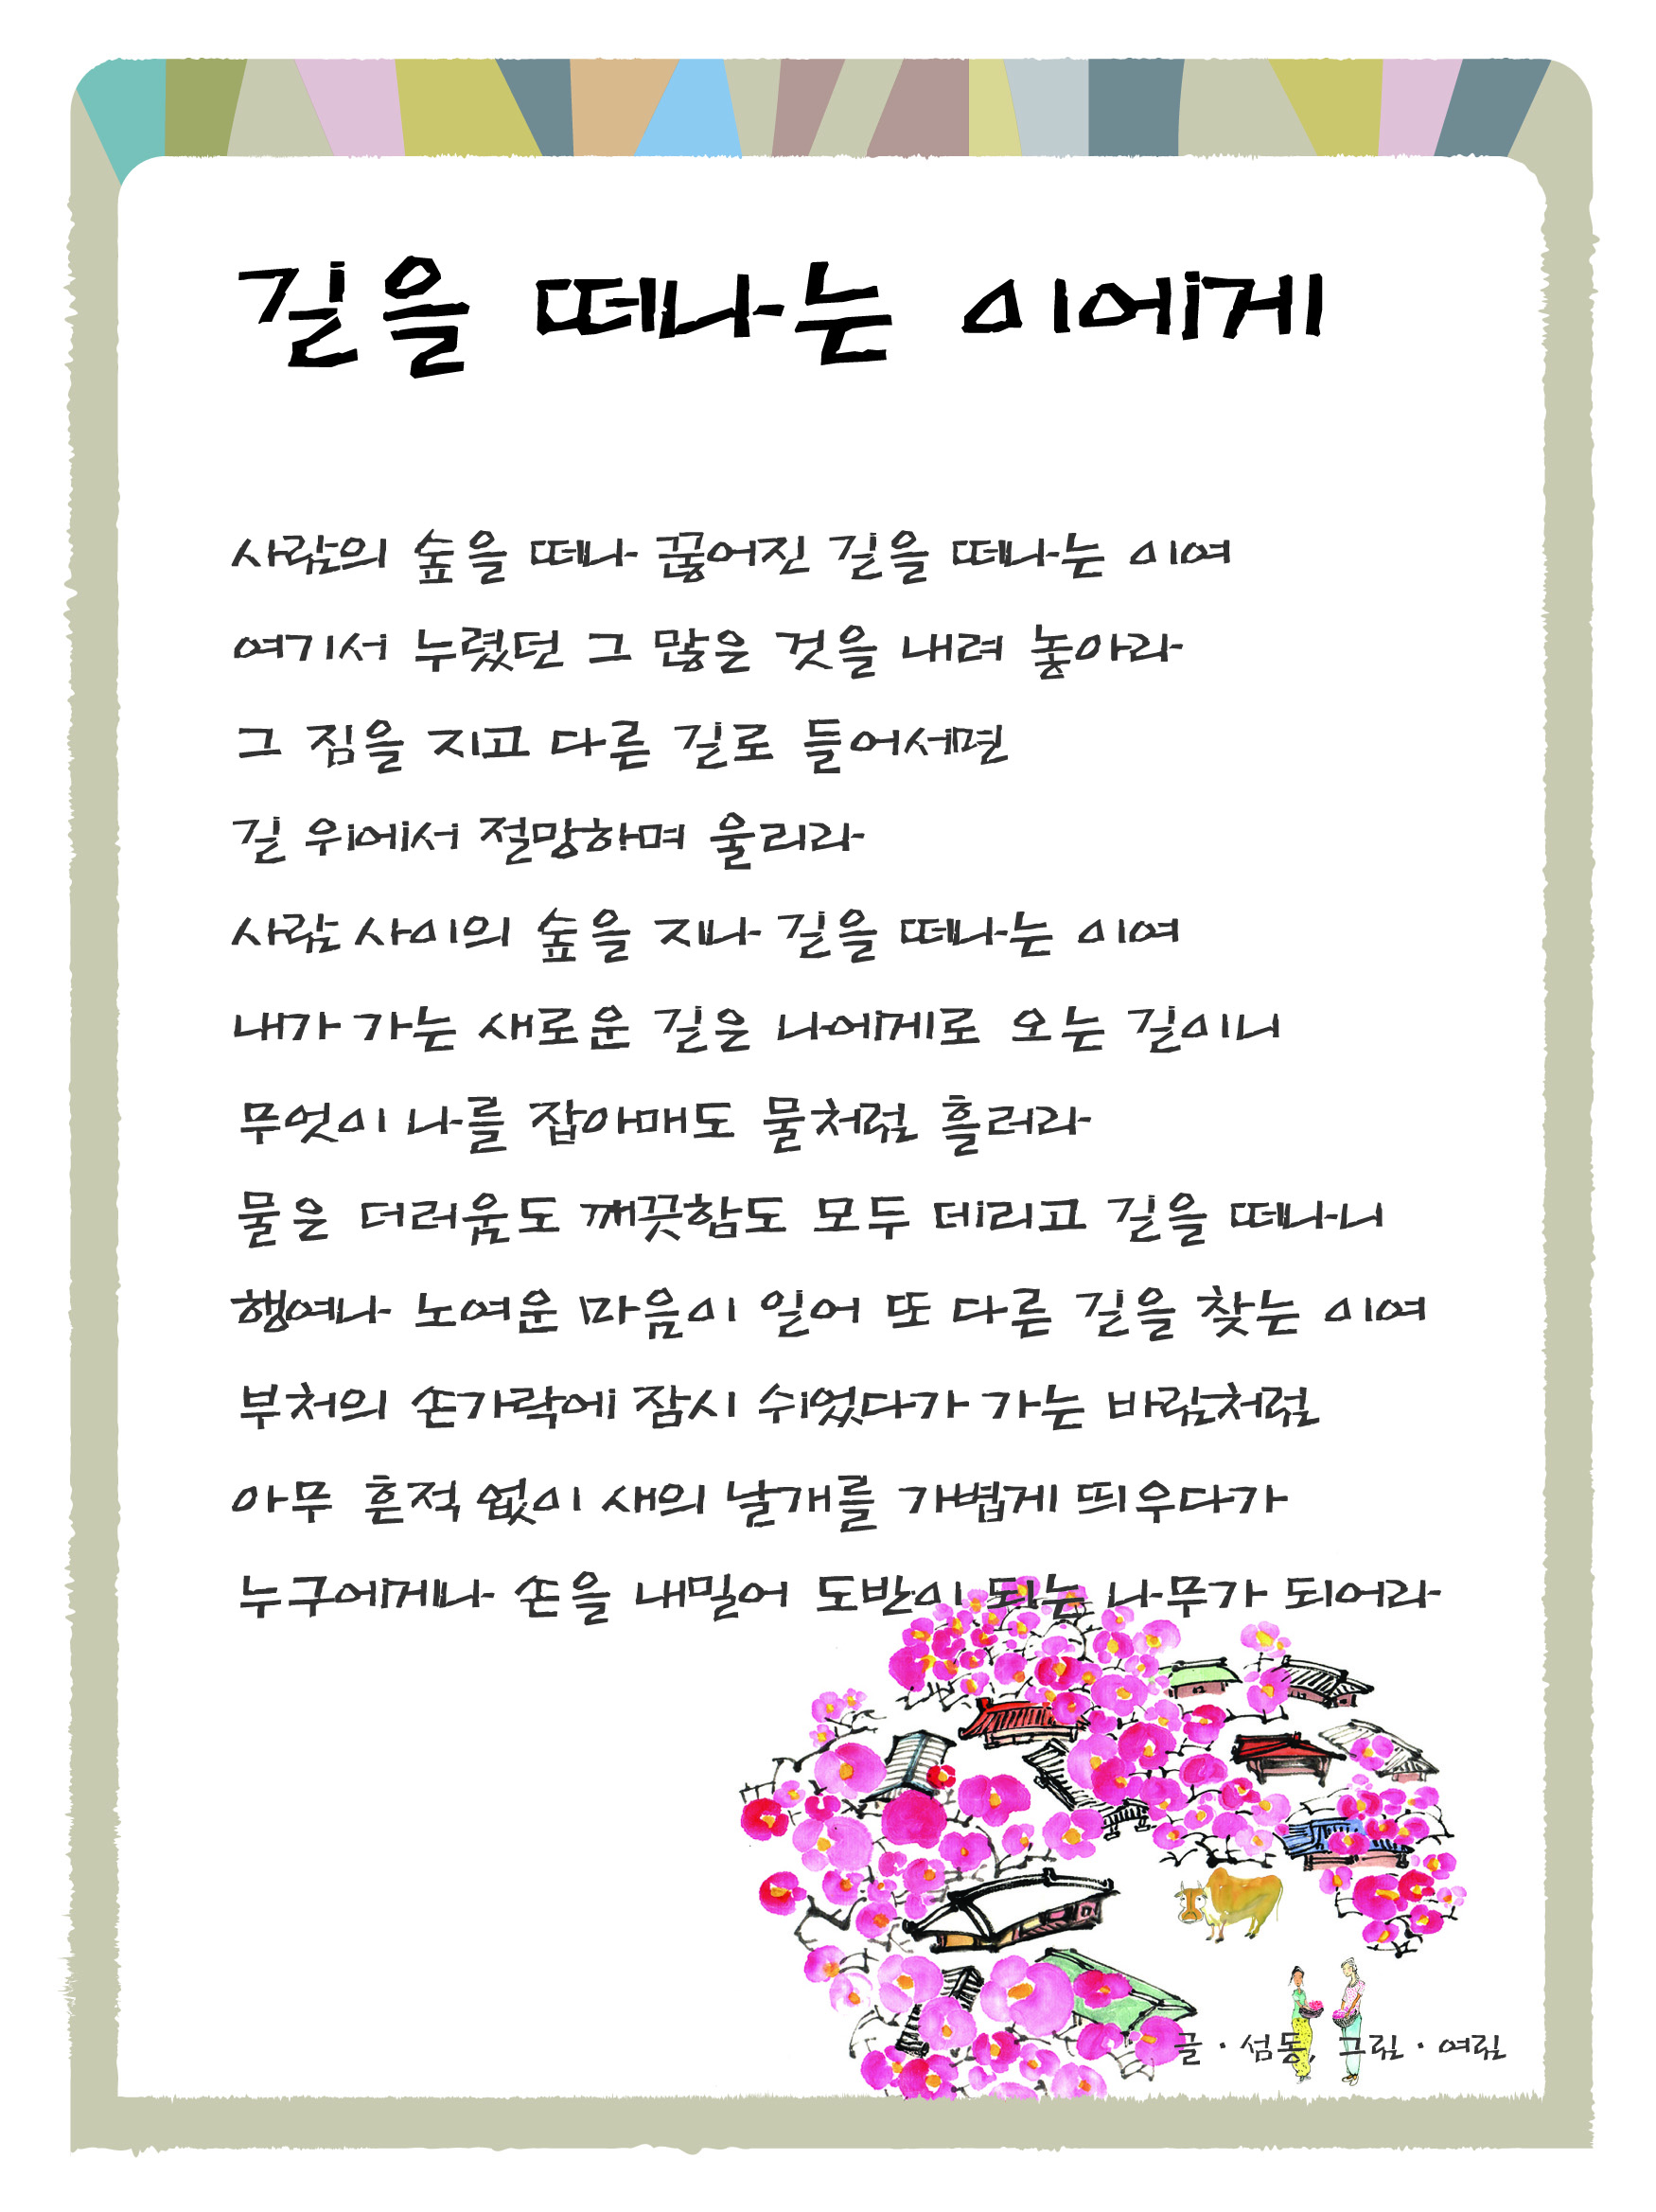 길을 떠나는 이에게
사람의 숲을 떠나 끊어진 길을 떠나는 이여
여기서 누렸던 그 많은 것을 내려 놓아라
그 짐을 지고 다른 길로 들어서면
길 위에서 절망하며 울리라
사람 사이의 숲을 지나 길을 떠나는 이여
내가 가는 새로운 길은 나에게로 오는 길이니
무엇이 나를 잡아매도 물처럼 흘러라
물은 더러움도 깨끗함도 모두 데리고 길을 떠나니
행여나 노여운 마음이 일어 또 다른 길을 찾는 이여
부처의 손가락에 잠시 쉬었다가 가는 바람처럼
아무 흔적 없이 새의 날개를 가볍게 띄우다가
누구에게나 손을 내밀어 도반이 되는 나무가 되어라
글·섬동, 그림·여림